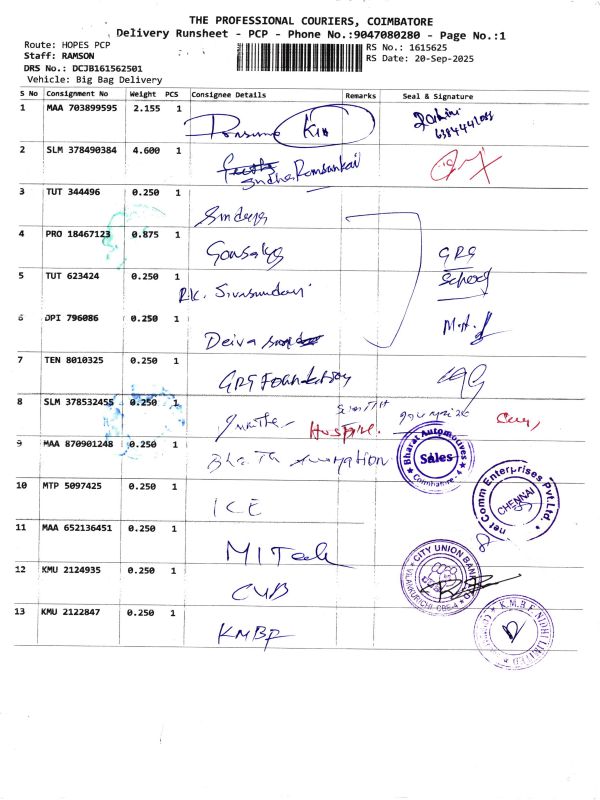 THE PROFESSIONAL COURIERS, COIMBATORE
Delivery Runsheet - PCP - Phone No.:9047080280 - Page No.:1
Route: HOPES PCP
Staff: RAMSON
DRS No.: DCJB161562501
Vehicle: Big Bag Delivery
RS No.: 1615625
RS Date: 20-Sep-2025
S No Consignment No Weight PCS Consignee Details Remarks Seal & Signature
1 MAA 703899595 2.155 1
2 SLM 378490384 4.600 1
3 TUT 344496 0.250 1
4 PRO 18467123 0.875 1
GRG
School
5 TUT 623424 0.250 1
R.K. Sivasundari
6 DPI 796086 0.250 1
Deiva
7 TEN 8010325 0.250 1
GRG Foundation
8 SLM 378532455 0.250 1
Hospice.
9 MAA 870901248 0.250 1
Bharat Automotives
Sales
Coimbatore - 4
10 MTP 5097425 0.250 1
ICE
net Comm Enterprises Pvt.Ltd.
CHENNAI
11 MAA 652136451 0.250 1
MITech
12 KMU 2124935 0.250 1
CUB
CITY UNION BANK
VILANKURICHI CBE-4
13 KMU 2122847 0.250 1
KMBF
K.M.B.F. NIDHI LIMITED